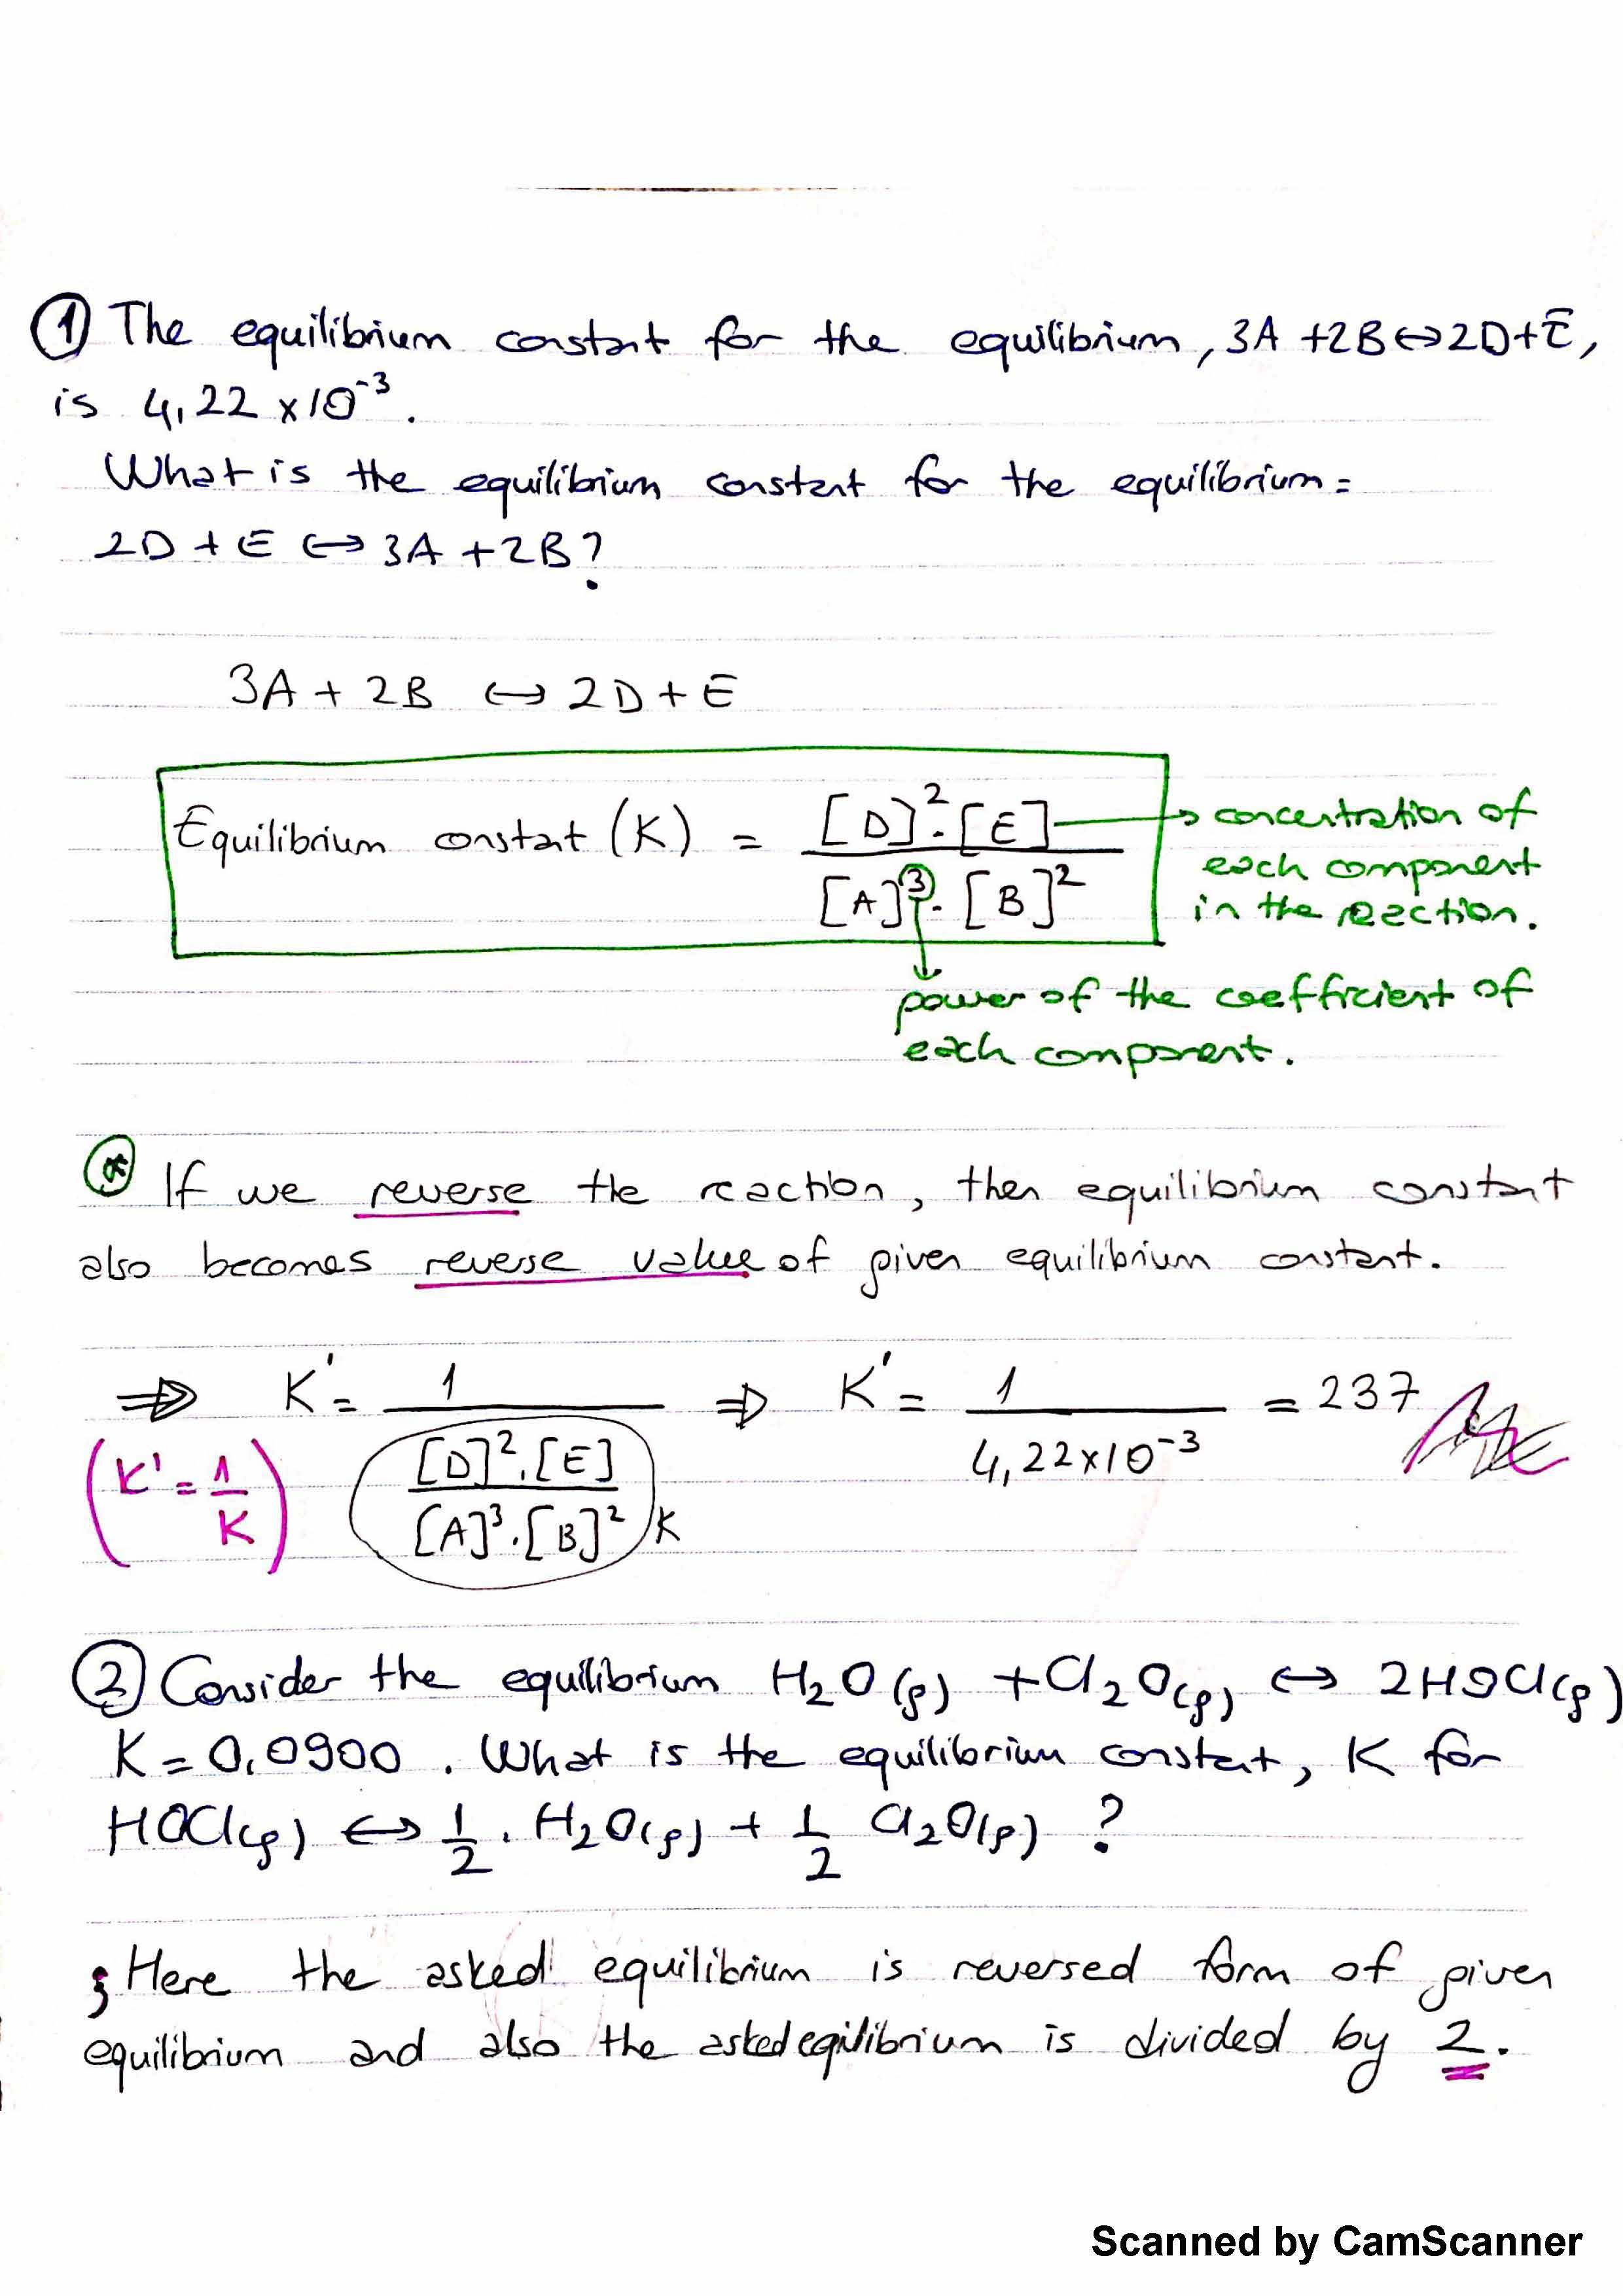 ① The equilibrium constant for the equilibrium, 3A +2B↔2D+E,
is 4,22 x10⁻³.
What is the equilibrium constant for the equilibrium=
2D + E ↔ 3A +2B?
3A + 2B ↔ 2D + E
Equilibrium constant (K) = [D]².[E] / [A]³.[B]²
→ concentration of
each component
in the reaction.
power of the coefficient of
each component.
If we reverse the reaction, then equilibrium constant
also becomes reverse value of given equilibrium constant.
⇒ K' = 1 / ([D]².[E] / [A]³.[B]²) K ⇒ K' = 1 / 4,22x10⁻³ = 237
(K' = 1/K)
② Consider the equilibrium H₂O(g) + Cl₂O(g) ↔ 2HOCl(g)
K = 0,0900 . What is the equilibrium constant, K for
HOCl(g) ↔ 1/2 . H₂O(g) + 1/2 Cl₂O(g) ?
Here the asked equilibrium is reversed form of given
equilibrium and also the asked eqilibrium is divided by 2.
Scanned by CamScanner